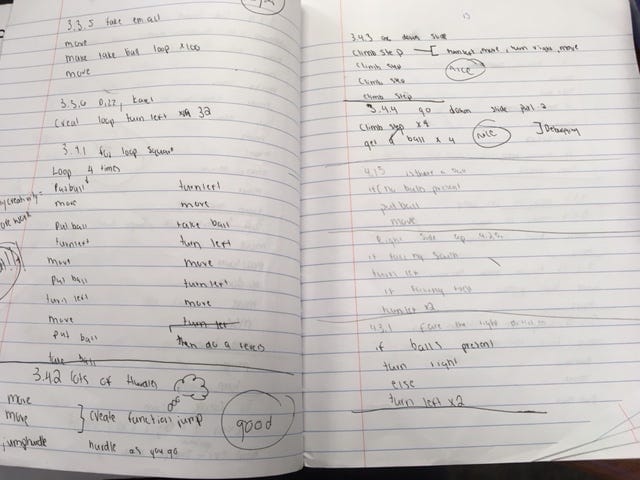 3.3.5 take em all
move
move take ball loop x100
move
3.3.6 Dizzy Karel
Creat loop turn left 32
3.4.1 for loop square
Loop 4 times
Put ball turn left
move move
Put ball take ball
turn left turn left
move move
Put ball turn left
turn left move
move turn left
put ball then do a
take ball
3.4.2 lots of Hurdles
move
move } create function jump
jump hurdle hurdle as you go
good
13
3.4.3 down slide
Climb step turn left, move, turn right, move
Climb step
Climb step
Climb step
nice
3.4.4 go down slide put 2
Climb step x4
get ball x 4
nice
] Debugging
4.1.5 is there a
if no balls present
put ball
move
Right side up 4.2.5
if facing south
turn left
if facing
turn left x2
4.3.1 face the right direction
if balls present
turn right
else
turn left x2